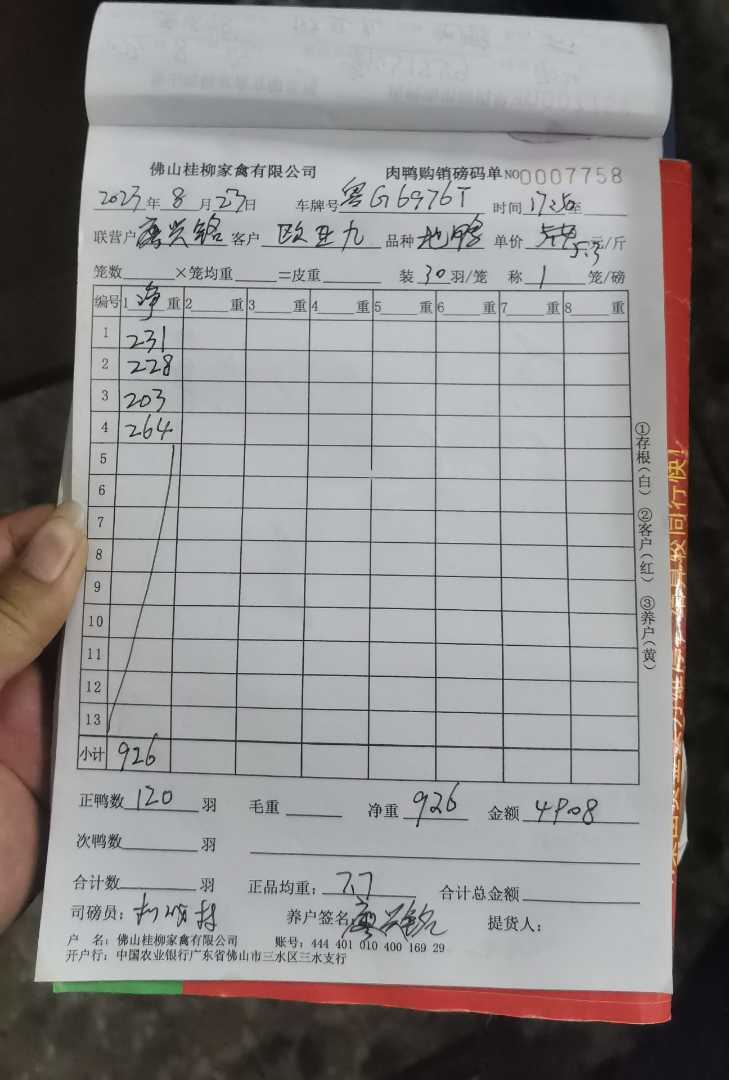 佛山桂柳家禽有限公司 肉鸭购销磅码单 NO 0007758
2023年 8 月 23日 车牌号 粤G6976T 时间 17:26 至
联营户 客户 欧亚九 品种 单价 5.3 元/斤
笼数 ×笼均重 =皮重 装 30 羽/笼 称 1 笼/磅
编号 1 净 重 2 重 3 重 4 重 5 重 6 重 7 重 8 重
1 231
2 228
3 203
4 264
5
6
7
8
9
10
11
12
13
小计 926
①存根(白) ②客户(红) ③养户(黄)
正鸭数 120 羽 毛重 净重 926 金额 4908
次鸭数 羽
合计数 羽 正品均重: 7.7 合计总金额
司磅员: 养户签名: 提货人:
户 名: 佛山桂柳家禽有限公司 账号: 444 401 010 400 169 29
开户行: 中国农业银行广东省佛山市三水区三水支行